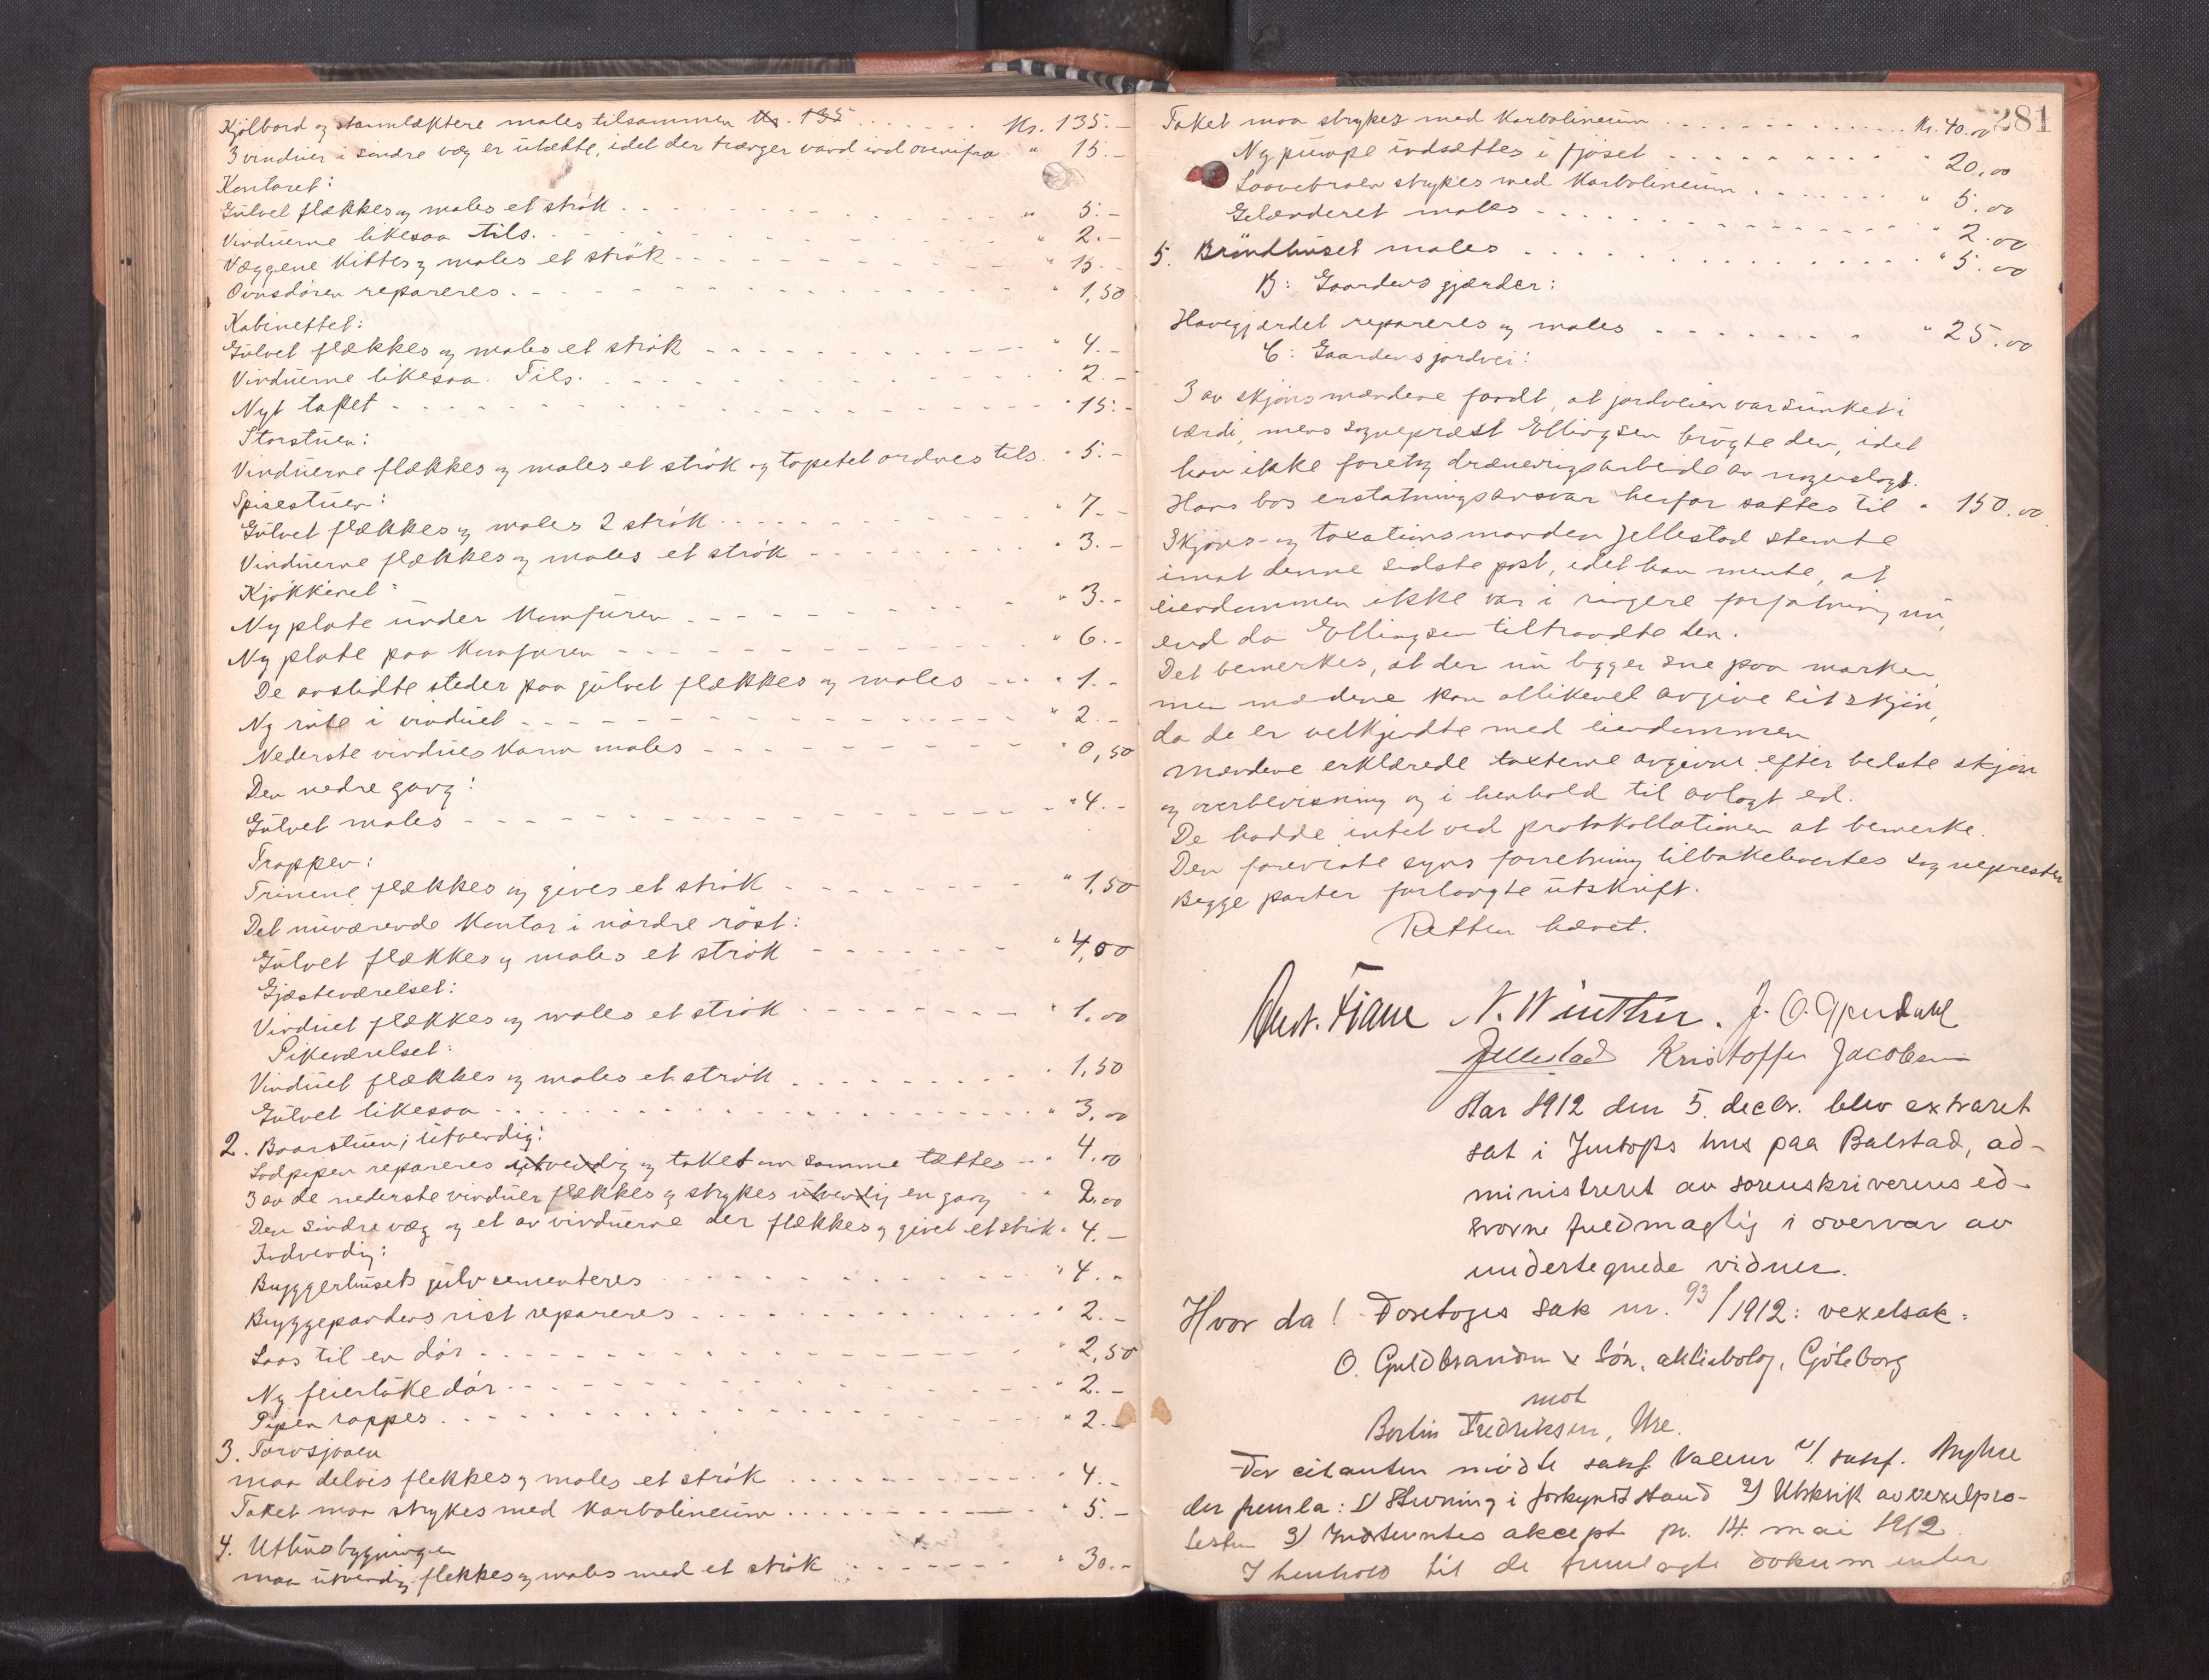 Kjölbord og stamlæktere males tilsammen Kr. 135 . . . . . . Kr. 135.–
3 vinduer i søndre væg er utætte, idet der trænger vand ind ovenifra " 15.–
Kontoret:
Gulvet flækkes og males et strök . . . " 5.–
Vinduerne likesaa tils. . . . " 2.–
Væggene kittes og males et strök . . . " 15.–
Ovnsdören repareres . . . " 1,50
Kabinettet:
Gulvet flækkes og males et strök . . . " 4.–
Vinduerne likesaa. Tils. . . . " 2.–
Nyt tapet . . . " 15.–
Storstuen:
Vinduerne flækkes og males et strök og tapetet ordnes tils. " 5.–
Spisestuen:
Gulvet flækkes og males 2 strök . . . " 7.–
Vinduerne flækkes og males et strök . . . " 3.–
Kjökkenet:
Ny plate under Komfuren . . . " 3.–
Ny plate paa Komfuren . . . " 6.–
De avslidte steder paa gulvet flækkes og males . . . " 1.–
Ny rute i vinduet . . . " 2.–
Nederste vindues karm males . . . " 0,50
Den nedre gang:
Gulvet males . . . " 4.–
Trappen:
Trinene flækkes og gives et strök . . . " 1,50
Det nuværende Kontor i nordre röst:
Gulvet flækkes og males et strök . . . " 4,00
Gjæsteværelset:
Vinduet flækkes og males et strök . . . " 1,00
Pikeværelset:
Vinduet flækkes og males et strök . . . " 1,50
Gulvet likesaa . . . " 3,00
2. Baarstuen; utvendig:
Lodpipen repareres utvendig og taket om samme tættes . . . " 4.00
3 av de nederste vinduer flækkes og strykes utvendig en gang . . " 2.00
Den söndre væg og et av vinduerne der flækkes og givet et strök " 4.–
Indvendig:
Bryggerhusets gulv cementeres . . . " 4.–
Bryggepandens rist repareres . . . " 2.–
Laas til en dör . . . " 2,50
Ny feierlukedör . . . " 2.–
Pipen rappes . . . " 2.–
3. Torvsjaaen
maa delvis flekkes og males et strök . . . " 4.–
Taket maa strykes med karbolineum . . . " 5.–
4. Uthusbygningen
maa utvendig flekkes og males med et strök . . . " 30.–
281
Taket maa strykes med Karbolineum . . . Kr. 40.00
Ny pumpe indsættes i fjöset . . . " 20,00
Laavebroen strykes med Karbolineum . . . " 5.00
Gelænderet males . . . " 2.00
5. Bröndhuset males . . . " 5.00
B: Gaardens gjærder:
Havegjærdet repareres og males . . . " 25.00
C: Gaardens jordvei:
3 av skjönsmændene fandt, at jordveien var sunket i
værdi, mens sogneprest Ellingsen brugte den, idet
han ikke foretog dræneringsarbeide av nogenslags.
Hans bos erstatningsansvar herfor sattes til " 150.00
Skjöns- og taxationsmanden Jellestad stemte
imot denne sidste post, idet han mente, at
eiendommen ikke var i ringere forfatning nu,
end da Ellingsen tiltraadte den.
Det bemerkes, at der nu ligger sne paa marken,
men mændene kan allikevel avgive sit skjön,
da de er velkjendte med eiendommen
Mændene erklærede taxterne avgivne efter bedste skjön
og overbevisning og i henhold til avlagt ed.
De hadde intet ved protokollationen at bemerke.
Den foreviste syns forretning tilbakeleveertes sognepresten
Begge parter forlangte utskrift.
Retten hævet.
Fiane N. Winther. J. O.
Jellestad Kristoffer Jacobsen
Aar 1912 den 5. decbr. blev extraret
sat i hus paa Balstad, ad-
ministreret av sorenskriverens ed-
svorne fuldmægtig i overvær av
undertegnede vidner.
Hvor da! Foretoges sak nr. 93/1912: vexelsak:
O. Guldbrandsen & Sön, aktiebolag, Göteborg
mot
Bertin Fredriksen, Ure.
For citanten mödte sakf. Valeur v/ sakf. Myhre
der fremla: 1) Stevning i forkyndt stand 2) Utskrift av vexelpro-
testen 3) Indstevntes akcept pr. 14. mai 1912
I henhold til de fremlagte dokumenter